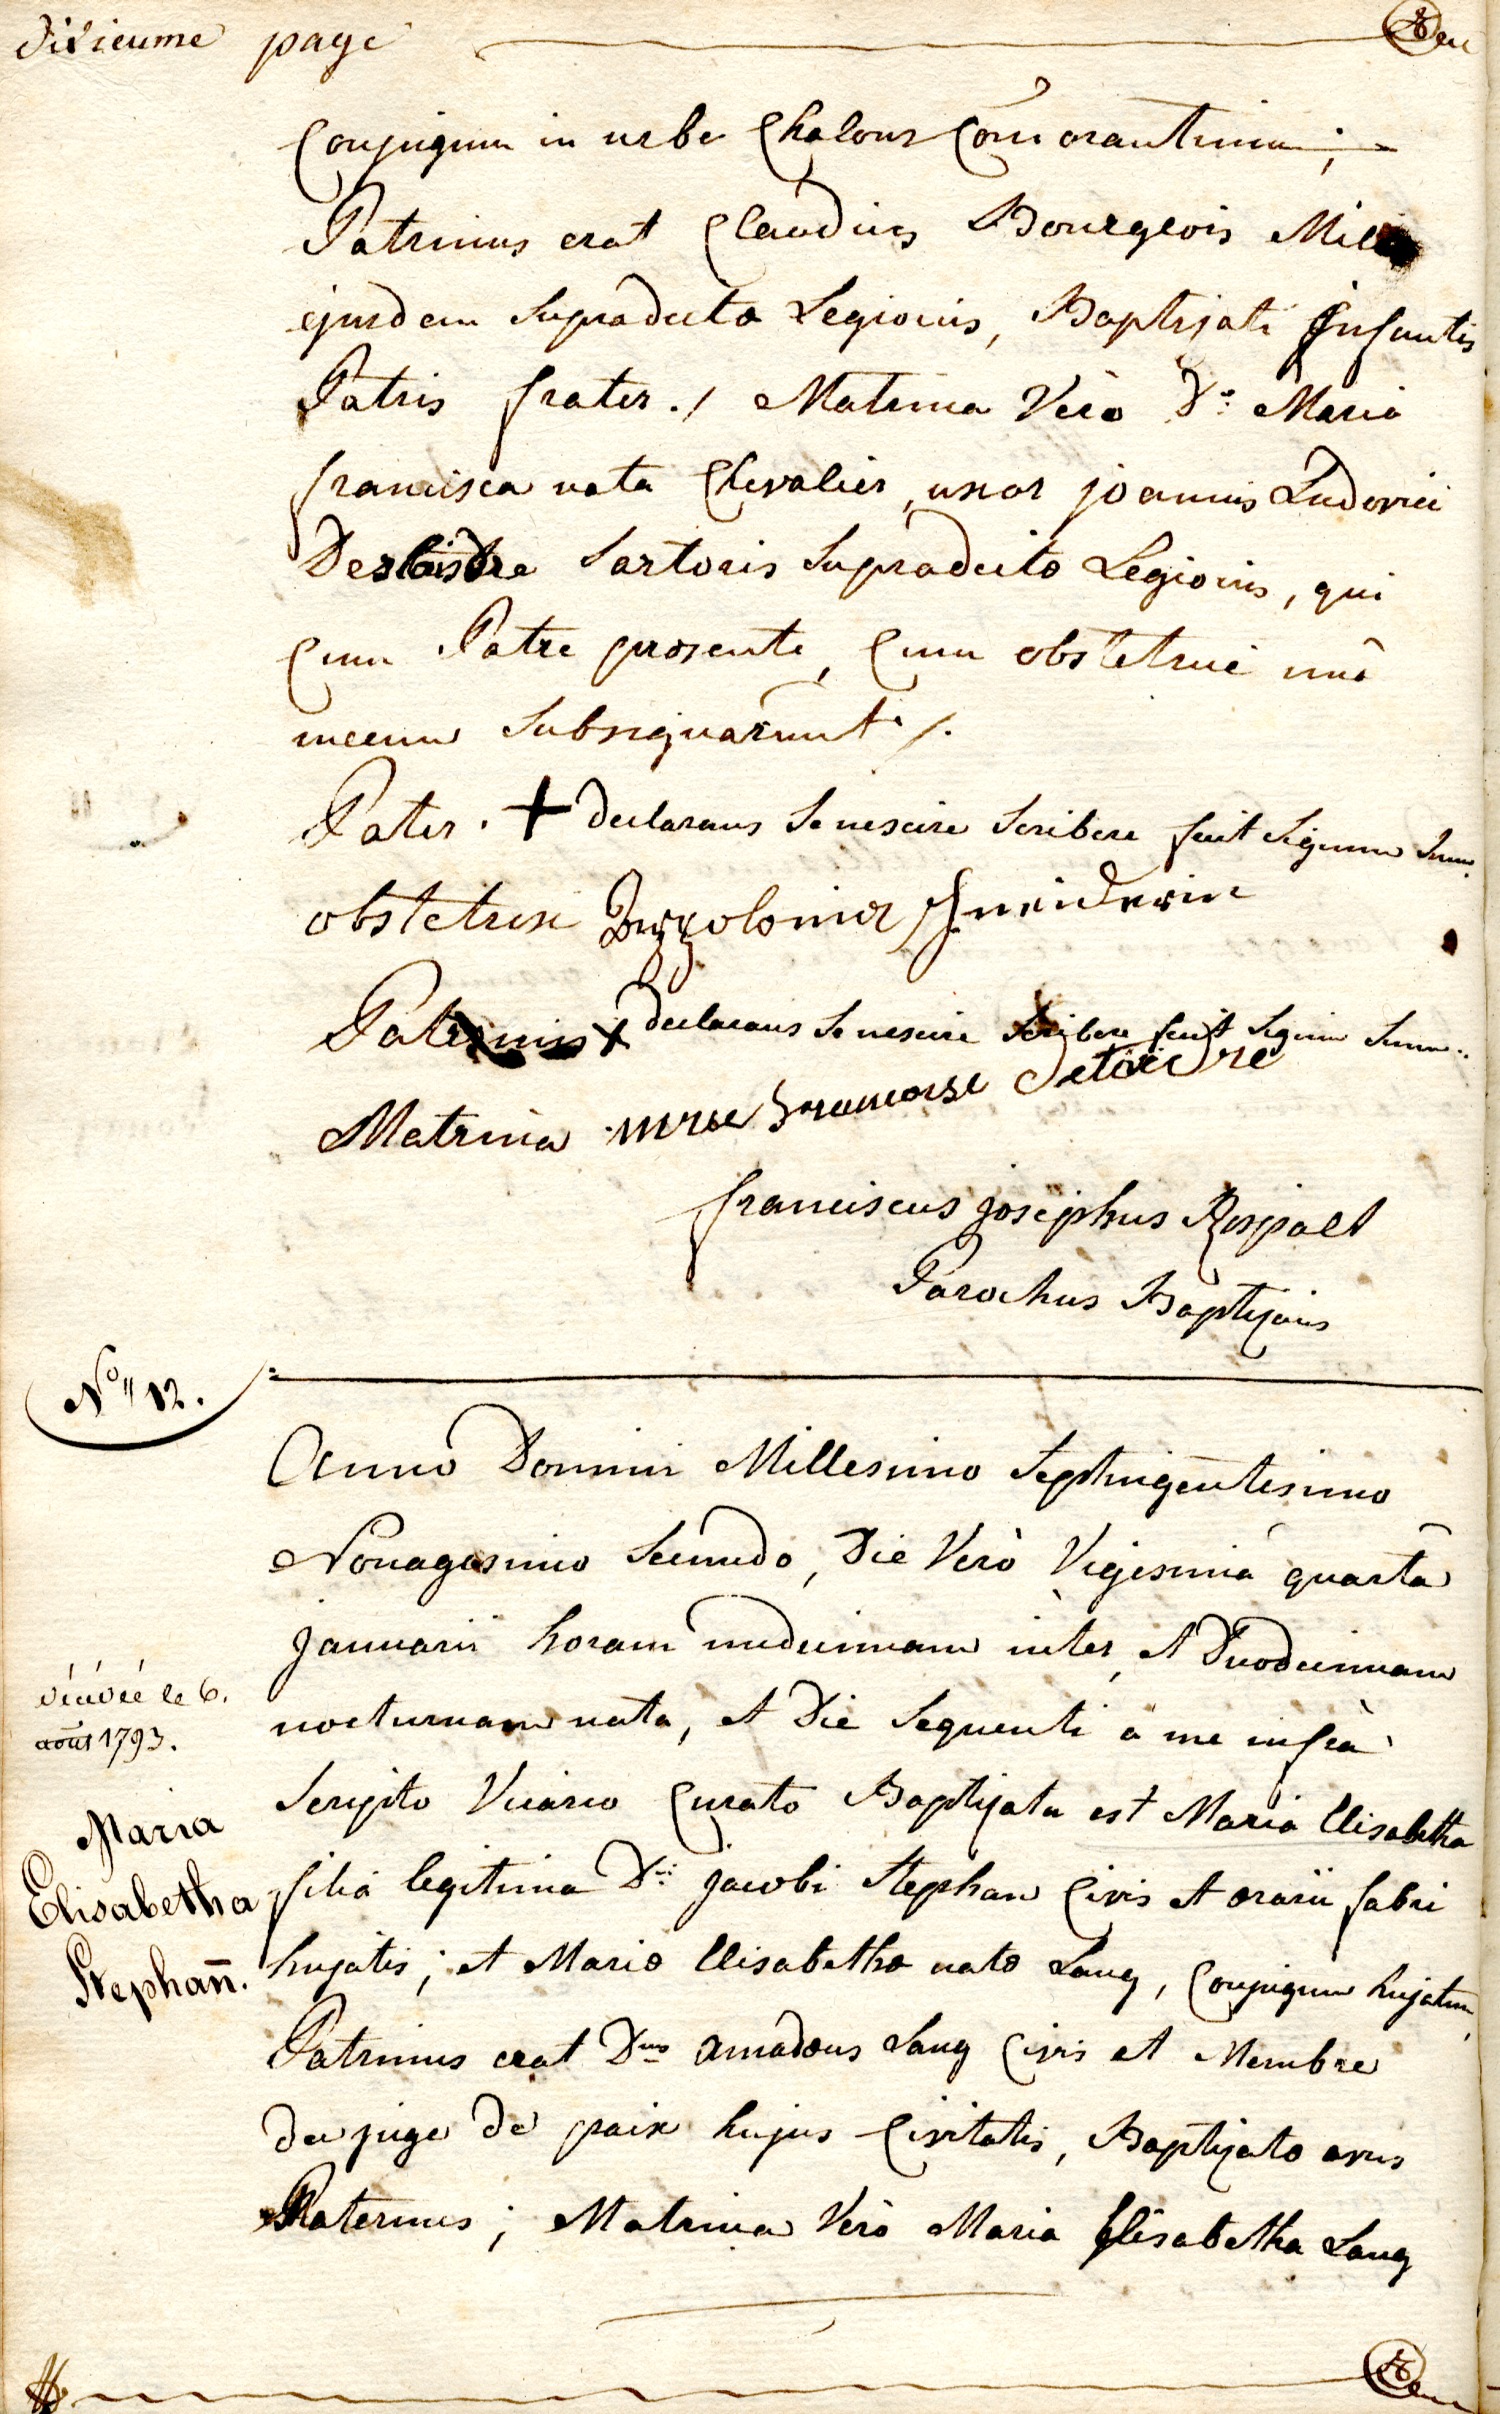 Dixieume page
Conjugum in urbe Chalons Com̄orantium;
Patrinus erat Claudius Bourgeois Mil
ejusdem Supradictæ Legionis, Baptisati Infantis
Patris frater ./ Matrina Verò Dª: Maria
francisca nata Chevalier, uxor joannis Ludovici
Destaistre Sartoris Supradictæ Legionis, qui
Cum Patre præsente, Cum obstetrice unà
mecum Subsignarunt ./.
Pater . + declarans Se nescire Scribere fecit Signum Suum.
obstetrix Appolonia Schneiderin
Patrinus + declarans Se nescire Scribere fecit Signum Suum..
Matrina mrie franceoise detaidre
franciscus josephus Rospalt
Parochus Baptizans
Nº 12.
Anno Domini Millesimo Septingentesimo
Nonagesimo Secundo, Die Verò Vigesimâ quartâ
januarii horam undecimam inter, et Duodecimam
nocturnam nata, et Die Sequenti à me infrà
Scripto Vicario Curato Baptizata est Maria Elisabetha
filia legitima Dni: jacobi Stephan Civis et ærarii fabri
hujatis; et Mariæ Elisabethæ natæ Lang, Conjugum hujatum,
Patrinus erat Dnus amadæus Lang Civis et Membre
du juge de paix hujus Civitatis, Baptizatæ avus
Maternus; Matrina Verò Maria Elisabetha Lang
décédé le 6.
août 1793.
Maria
Elisabetha
Stephan̄.